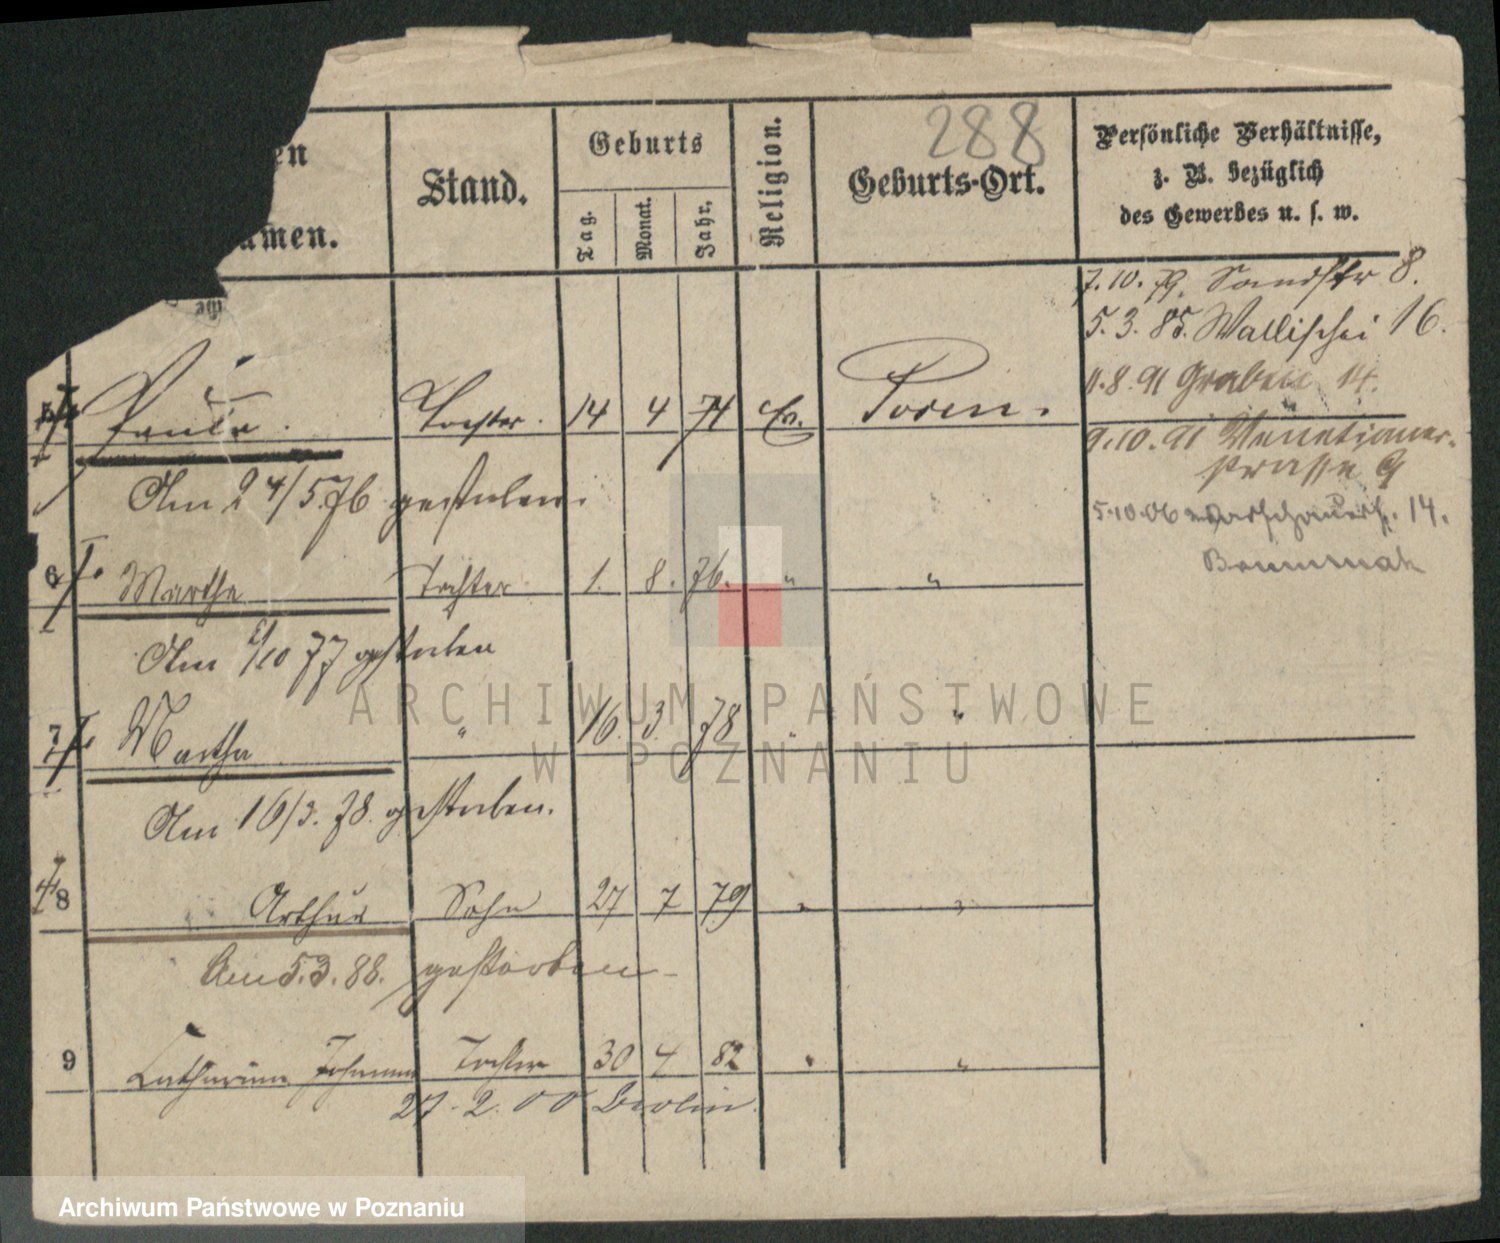 288
en
amen.
Stand.
Geburts
Tag.
Monat.
Jahr.
Religion.
Geburts-Ort.
Persönliche Verhältnisse,
z. B. bezüglich
des Gewerbes u. s. w.
7.10.79. Sandstr 8.
5.3.85. Wallischei 16.
11.8.91 Graben 14.
9.10.91 Venetianer-
strasse 9
5.10.06 Warschauerstr. 14.
Tochter. 14 4 74 Ev. Posen.
Am 24/5.76 gestorben.
6 Marthe Tochter 1. 8. 76. " "
Am /10 77 gestorben
7 Martha " 16. 3. 78 " "
Am 16/3. 78. gestorben.
8 Arthur Sohn 27 7 79 " "
Am 5.3.88. gestorben
9 Catharina Johanna Tochter 30 4 82 " "
27.2.00 Berlin.
ARCHIWUM PAŃSTWOWE
W POZNANIU
Archiwum Państwowe w Poznaniu